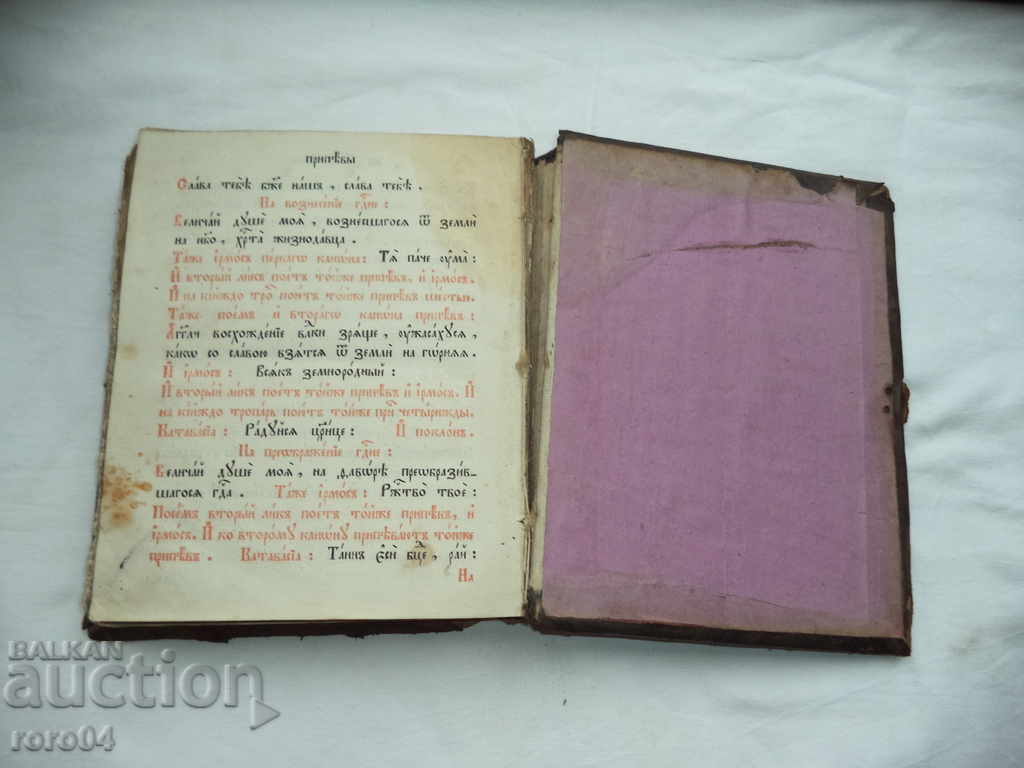 припѣвы
Слава тебѣ бж҃е нашъ, слава тебѣ.
На вознесенїе гдⷭ҇не:
Величай душе моѧ̀, вознесшагосѧ ѿ земли
на нб҃о, хрⷭ҇та̀ жизнодавца.
Таже і҆рмосъ первагѡ канѡна: Тѧ̀ паче ᲂу҆ма̀:
И҆ вторый ликъ поетъ то́йже припѣвъ, и҆ і҆рмосъ.
И҆ на кїйждо трⷪ҇ поетъ то́йже припѣвъ шестьи.
Таже поемъ и҆ вторагѡ канѡна припѣвъ:
А҆гг҃ли восхожденїе влⷣки зрѧще, ᲂу҆жасахусѧ,
какѡ со славою взѧ́тсѧ ѿ земли на гѡрнѧѧ.
И҆ і҆рмосъ: Всѧкъ земнородный:
И҆ вторый ликъ поетъ то́йже припѣвъ и҆ і҆рмосъ. И҆
на кїйждо тропарь поетъ то́йже при́ четырижды.
Катавасїа: Радуйсѧ цр҃ице: И҆ поклонъ.
На преѡбраженїе гдⷭ҇не:
Величай душе моѧ̀, на ѳавѡрѣ преѡбразив-
шагосѧ гдⷭ҇а. Таже і҆рмосъ: Ржⷭ҇тво̀ твое:
Посемъ вторый ликъ поетъ то́йже припѣвъ, и҆
і҆рмосъ. И҆ ко второму канѡну припѣваютъ то́йже
припѣвъ. Катавасїа: Таинъ є҆сѝ бцⷣе, рай:
На
BALKAN
auction
roro04